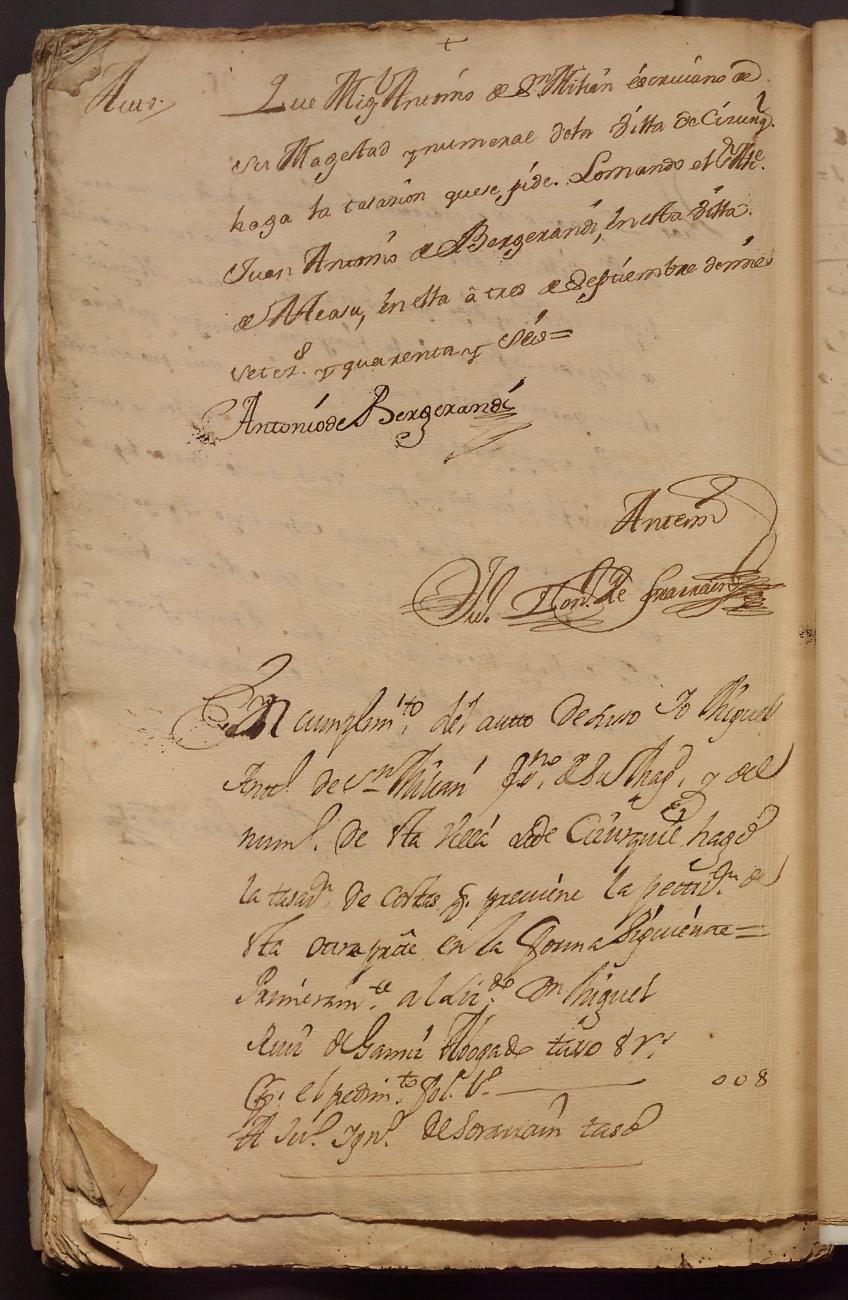 Auto.
Que Migl Antonio de Sn Millan escriuano de
su Magestad y numeral dela Villa de Cizurql.
haga la tasazion que se pide. Lo mando el Alce.
Juan Antonio de Bergerandi, en esta Villa
de Aleasu, en ella â tres de Septiembre de mil
setezs. y quarenta y Seis=
Antonio de Bergerandi
Antemi
En cumplimto. del auto de suso Yo Miguel
Anto. de Sn Millan Essno. de Su Magd. y del
numo. de sta Villa de Cizurquil hago
la tasaon. de costas q. preuiene la petizon. de
sta otra pte en la forma siguiente=
Primeramte. a al Lizdo. Dn Miguel
Ruiz de Gamiz Abogado taso 8 rs
Por el pedimto. fol. 1o. 008
A Juo. Igno. de Sorarrain taso